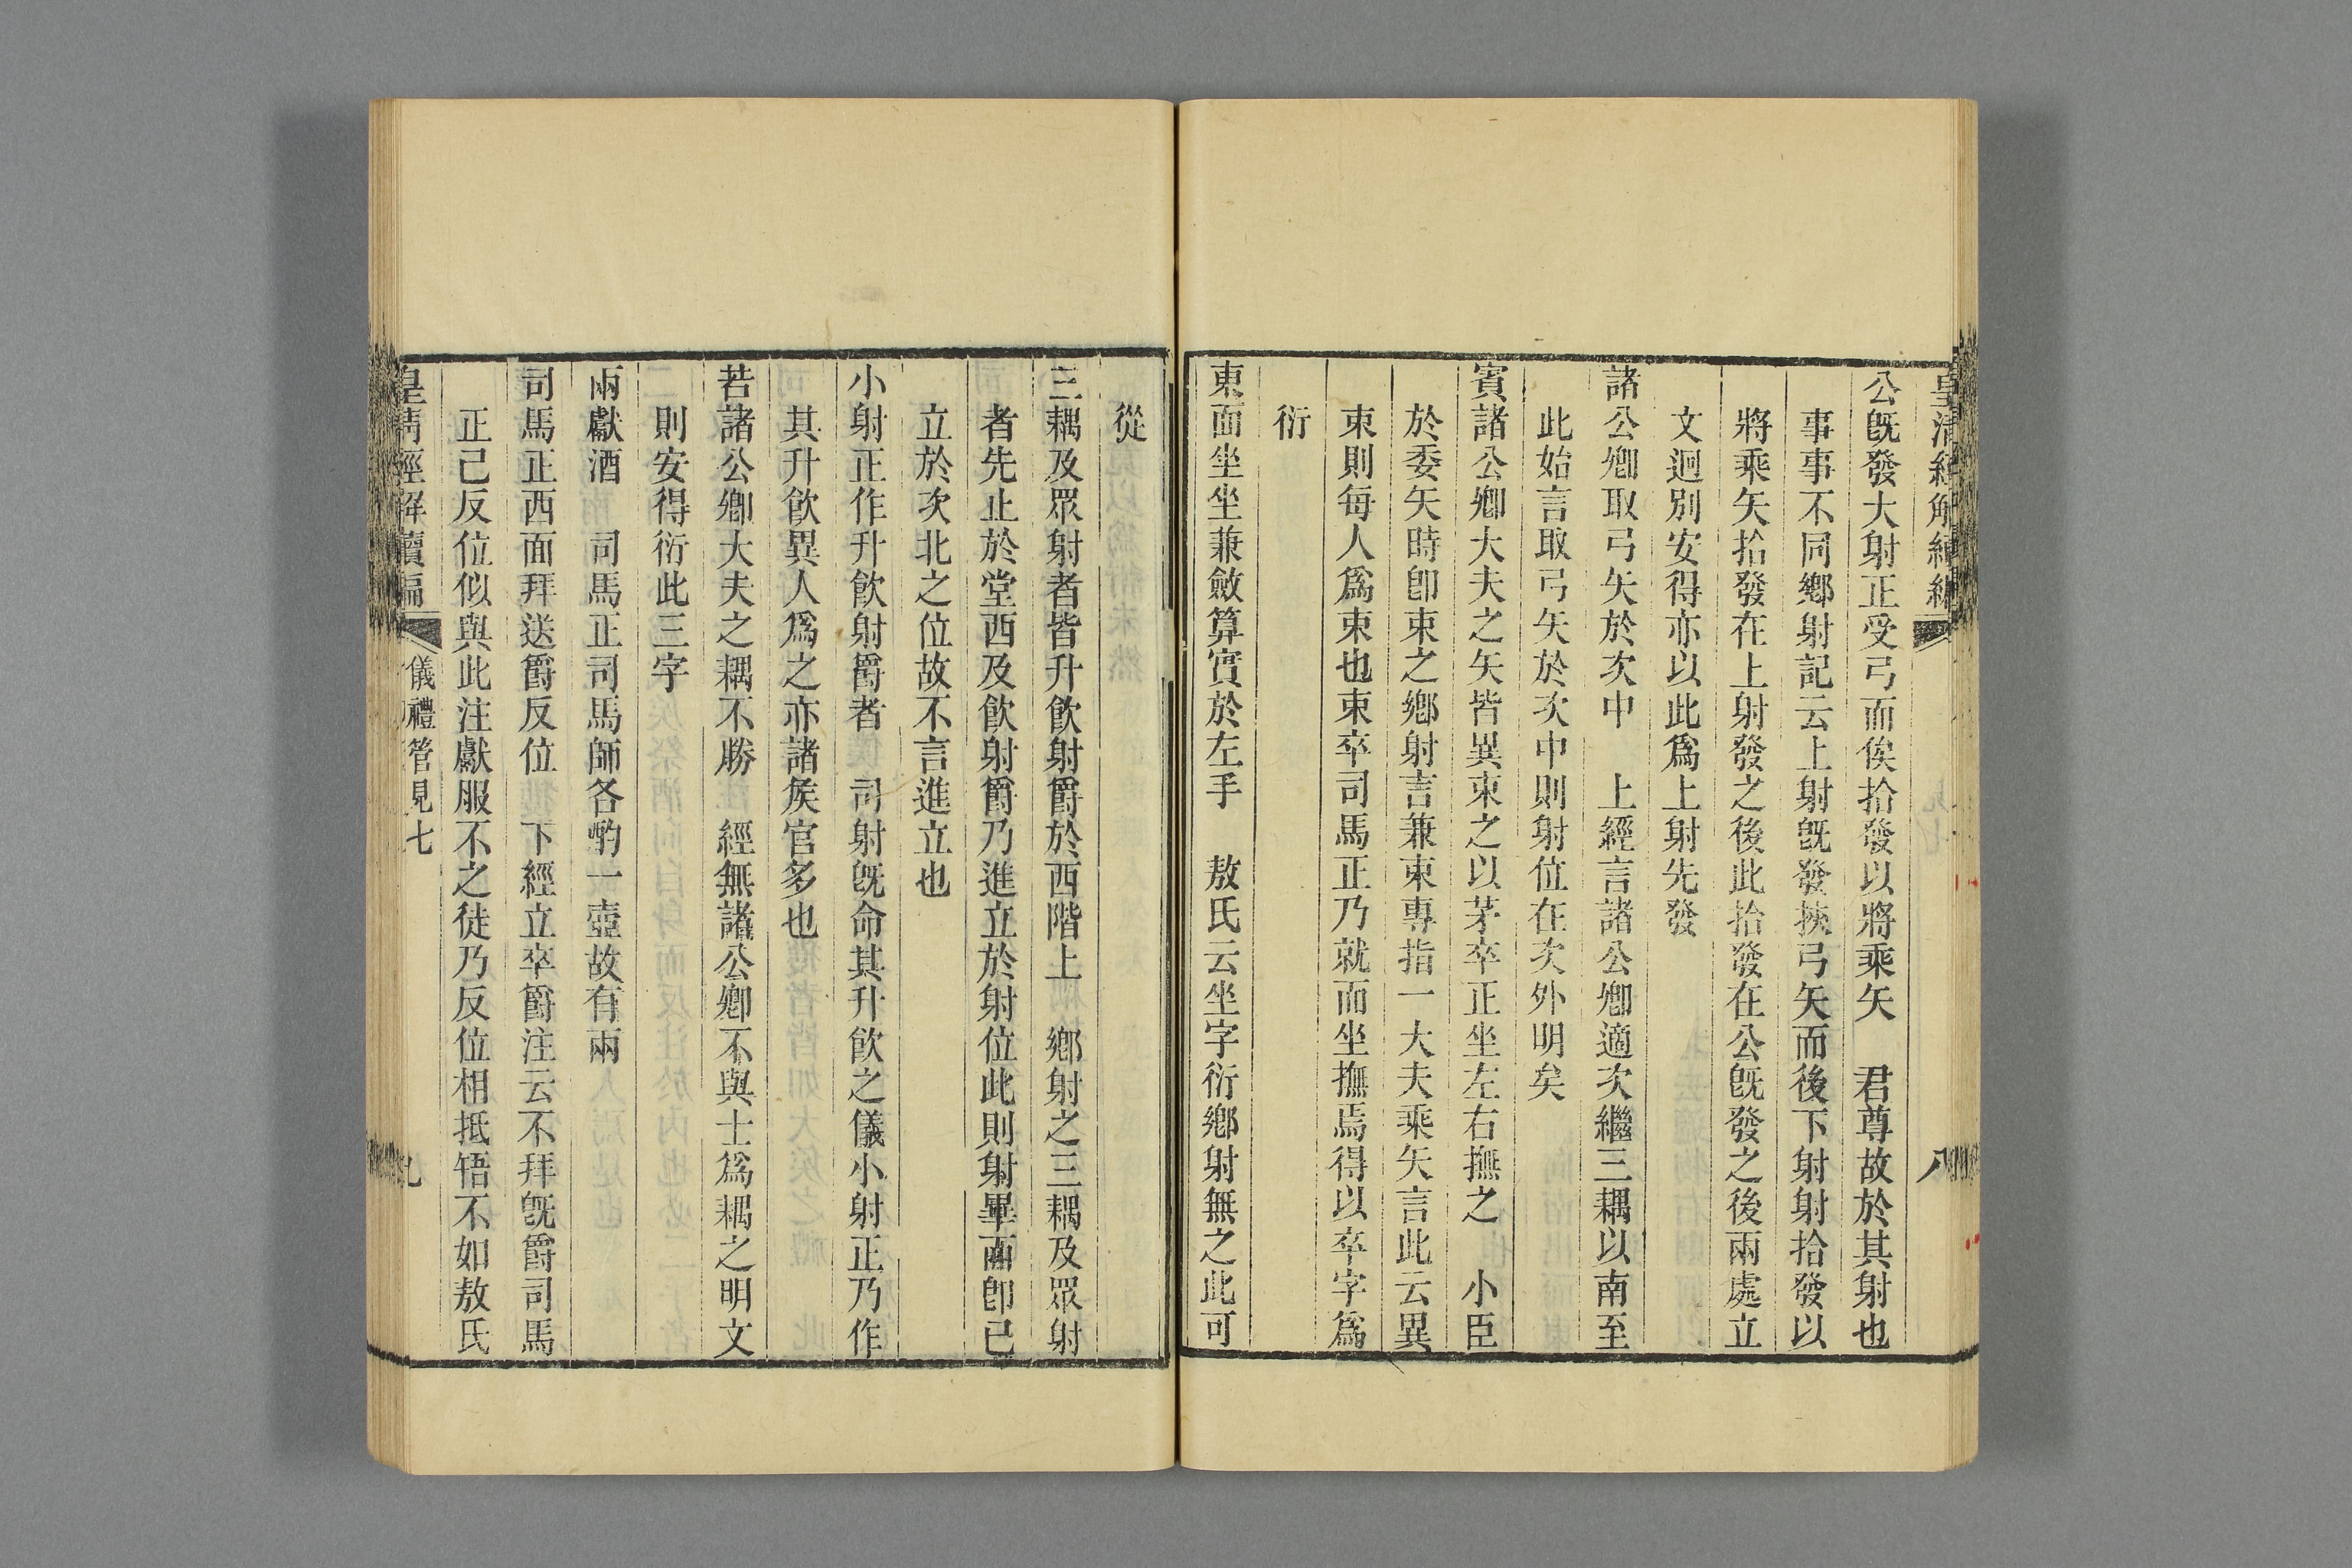 皇清經解續編
八
公旣發大射正受弓而俟拾發以將乘矢　君尊故於其射也
事事不同鄉射記云上射旣發挾弓矢而後下射射拾發以
將乘矢拾發在上射發之後此拾發在公旣發之後兩處立
文迥別安得亦以此爲上射先發
諸公卿取弓矢於次中　上經言諸公卿適次繼三耦以南至
此始言取弓矢於次中則射位在次外明矣
賓諸公卿大夫之矢皆異束之以茅卒正坐左右撫之　小臣
於委矢時卽束之鄉射言兼束專指一大夫乘矢言此云異
束則每人爲束也束卒司馬正乃就而坐撫焉得以卒字爲
衍
東面坐坐兼斂算實於左手　敖氏云坐字衍鄉射無之此可
從
三耦及眾射者皆升飮射爵於西階上　鄉射之三耦及眾射
者先止於堂西及飮射爵乃進立於射位此則射畢而卽已
立於次北之位故不言進立也
小射正作升飮射爵者　司射旣命其升飮之儀小射正乃作
其升飮異人爲之亦諸矦官多也
若諸公卿大夫之耦不勝　經無諸公卿不與士爲耦之明文
則安得衍此三字
兩獻酒　司馬正司馬師各酌一壺故有兩
司馬正西面拜送爵反位　下經立卒爵注云不拜旣爵司馬
正已反位似與此注獻服不之徒乃反位相抵牾不如敖氏
皇淸經解續編
儀禮管見七
九